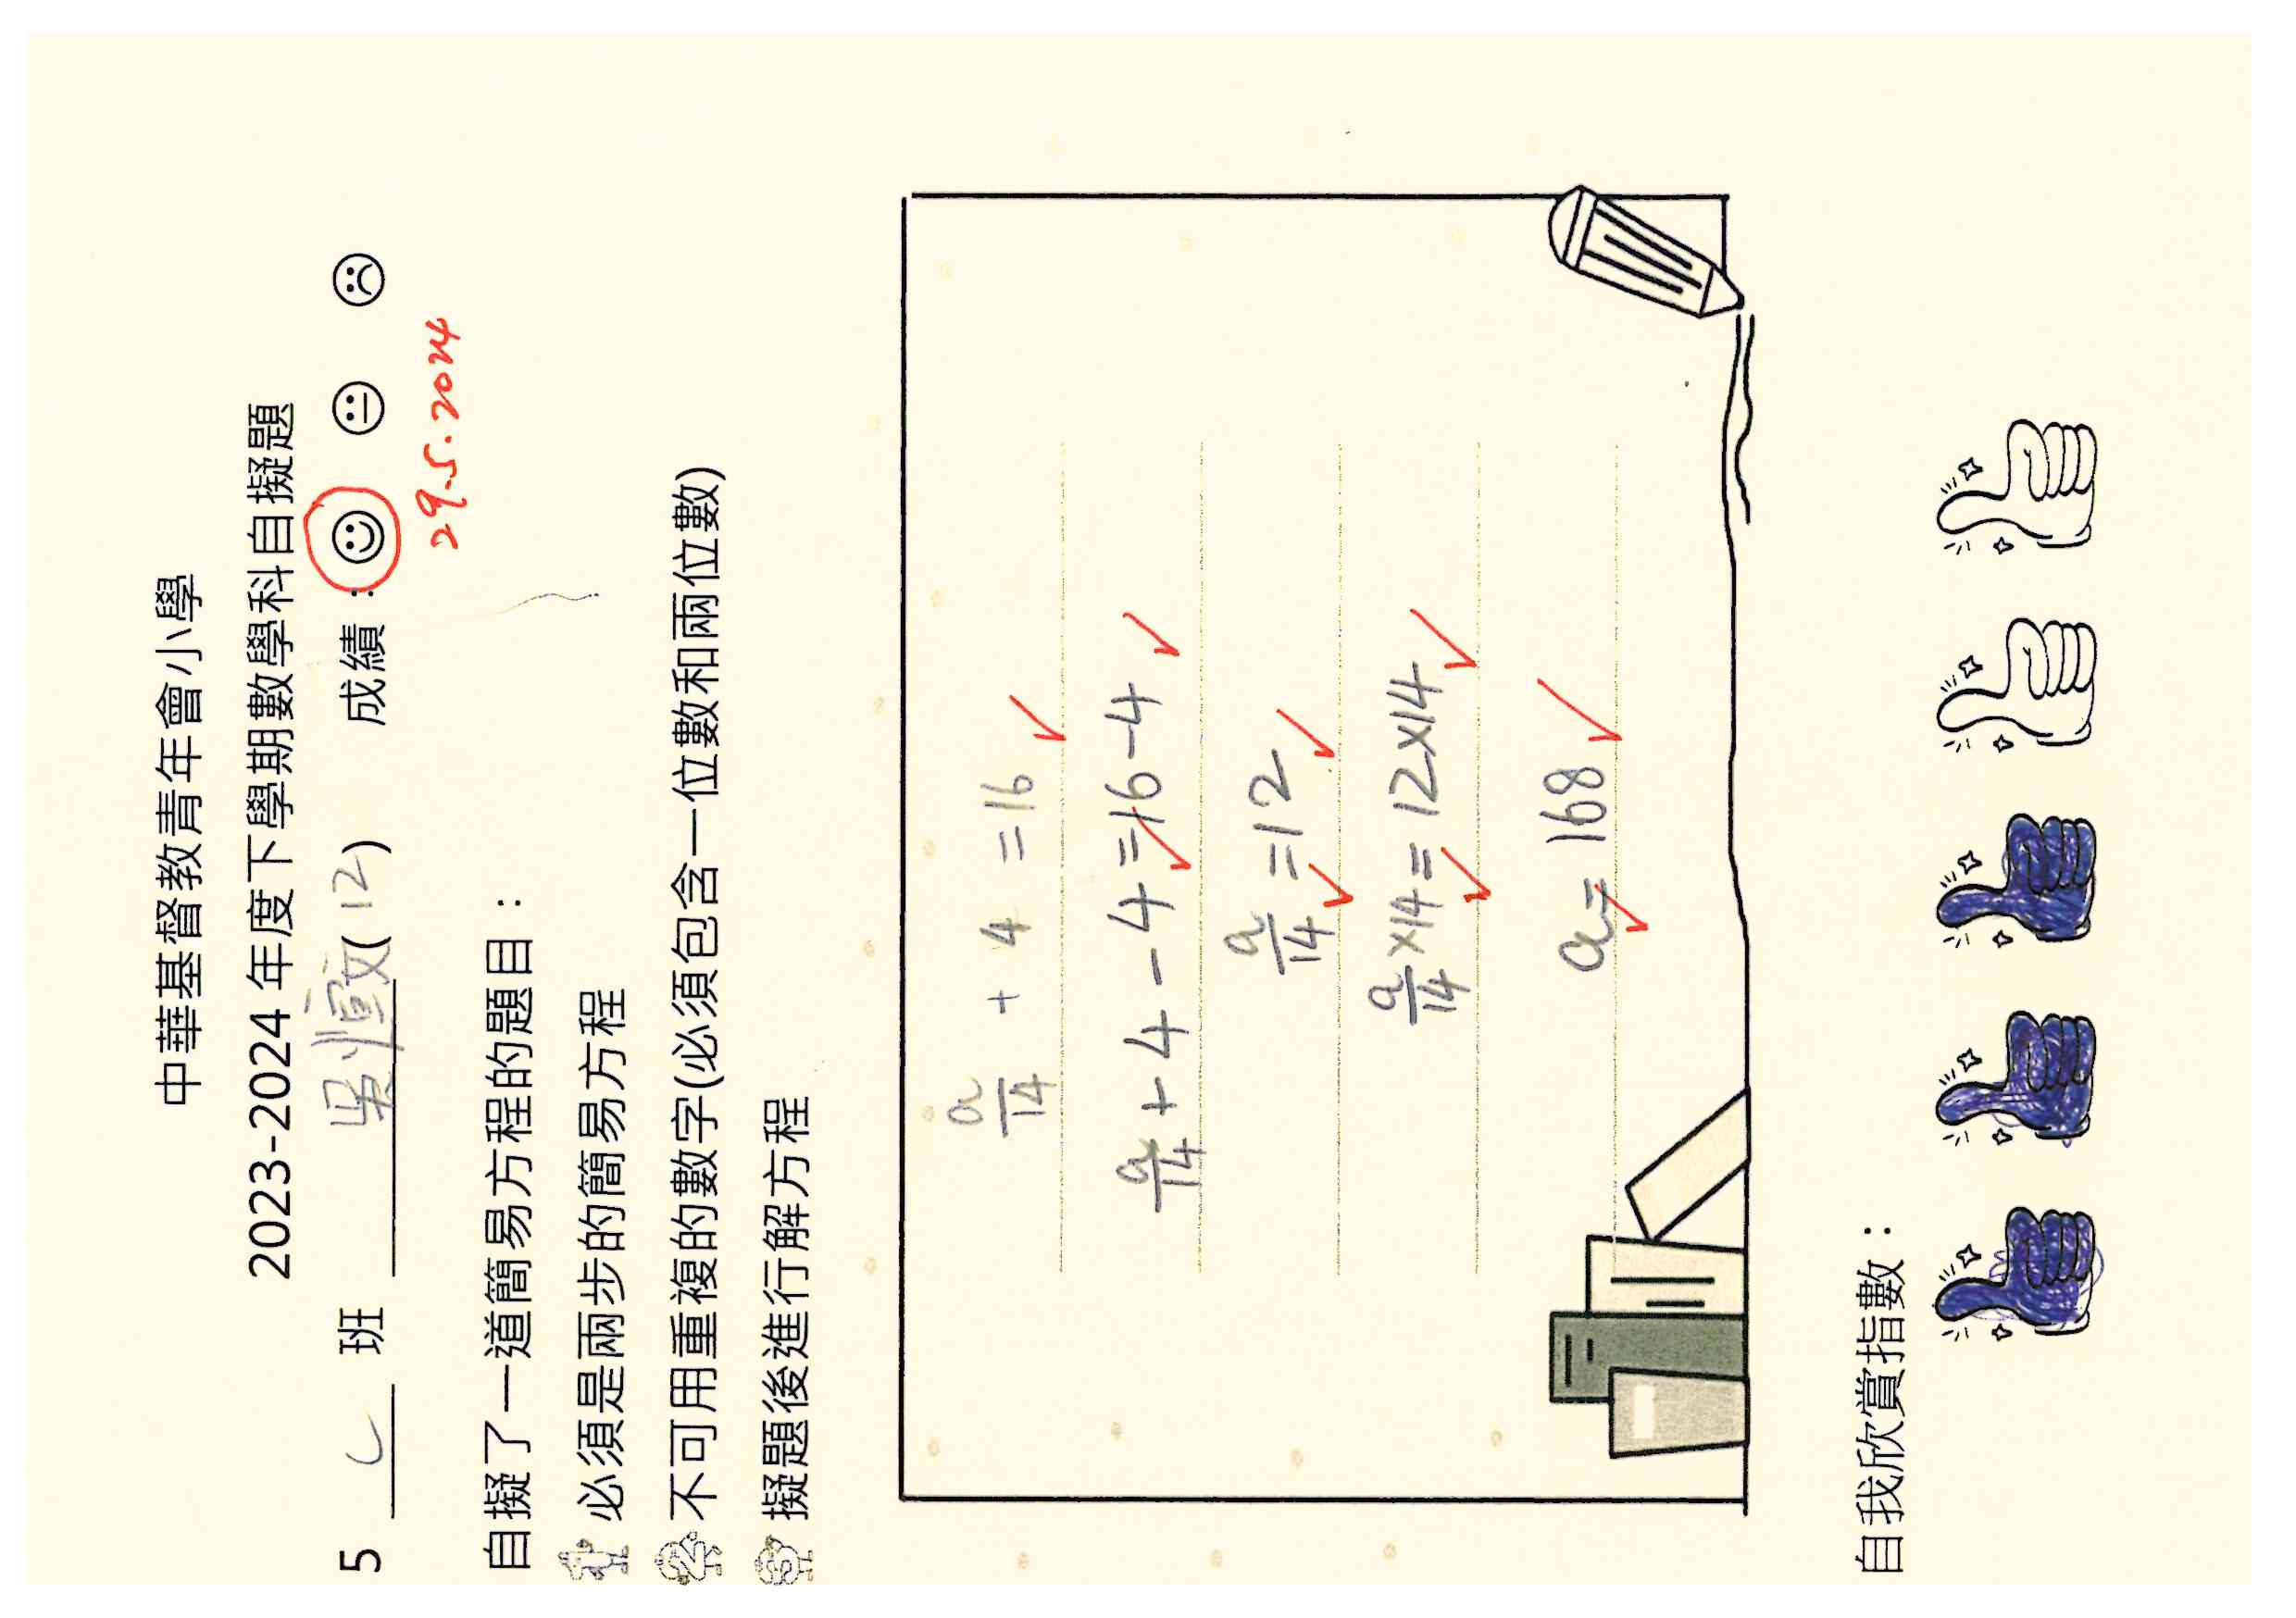 中華基督教青年會小學
2023-2024 年度下學期數學科自擬題
5 C 班 吳愷玟(12) 成績：
29.5.2024
自擬了一道簡易方程的題目：
必須是兩步的簡易方程
不可用重複的數字(必須包含一位數和兩位數)
擬題後進行解方程
a/14 + 4 = 16
a/14 + 4 - 4 = 16 - 4
a/14 = 12
a/14 × 14 = 12 × 14
a = 168
自我欣賞指數：